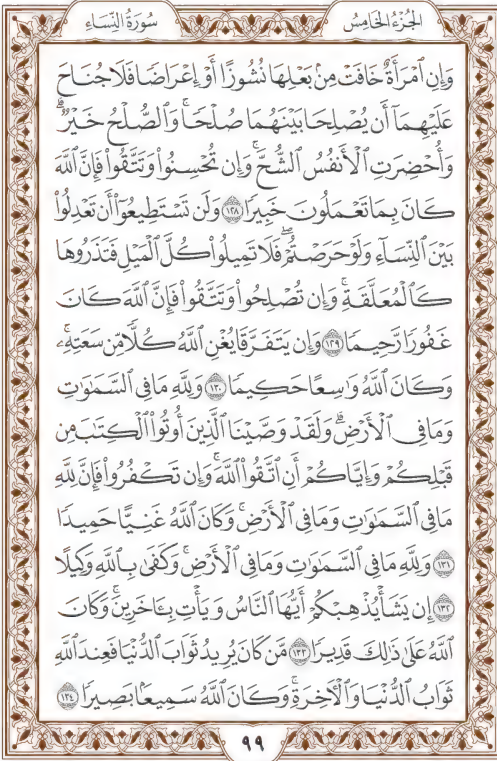 الجُزْءُ الخَامِسُ سُورَةُ النِّسَاءِ
وَإِنِ ٱمۡرَأَةٌ خَافَتۡ مِنۢ بَعۡلِهَا نُشُوزًا أَوۡ إِعۡرَاضٗا فَلَا جُنَاحَ
عَلَيۡهِمَآ أَن يُصۡلِحَا بَيۡنَهُمَا صُلۡحٗاۚ وَٱلصُّلۡحُ خَيۡرٞۗ
وَأُحۡضِرَتِ ٱلۡأَنفُسُ ٱلشُّحَّۚ وَإِن تُحۡسِنُواْ وَتَتَّقُواْ فَإِنَّ ٱللَّهَ
كَانَ بِمَا تَعۡمَلُونَ خَبِيرٗا ١٢٨ وَلَن تَسۡتَطِيعُوٓاْ أَن تَعۡدِلُواْ
بَيۡنَ ٱلنِّسَآءِ وَلَوۡ حَرَصۡتُمۡۖ فَلَا تَمِيلُواْ كُلَّ ٱلۡمَيۡلِ فَتَذَرُوهَا
كَٱلۡمُعَلَّقَةِۚ وَإِن تُصۡلِحُواْ وَتَتَّقُواْ فَإِنَّ ٱللَّهَ كَانَ
غَفُورٗا رَّحِيمٗا ١٢٩ وَإِن يَتَفَرَّقَا يُغۡنِ ٱللَّهُ كُلّٗا مِّن سَعَتِهِۦۚ
وَكَانَ ٱللَّهُ وَٰسِعًا حَكِيمٗا ١٣٠ وَلِلَّهِ مَا فِي ٱلسَّمَٰوَٰتِ
وَمَا فِي ٱلۡأَرۡضِۗ وَلَقَدۡ وَصَّيۡنَا ٱلَّذِينَ أُوتُواْ ٱلۡكِتَٰبَ مِن
قَبۡلِكُمۡ وَإِيَّاكُمۡ أَنِ ٱتَّقُواْ ٱللَّهَۚ وَإِن تَكۡفُرُواْ فَإِنَّ لِلَّهِ
مَا فِي ٱلسَّمَٰوَٰتِ وَمَا فِي ٱلۡأَرۡضِۚ وَكَانَ ٱللَّهُ غَنِيًّا حَمِيدٗا
١٣١ وَلِلَّهِ مَا فِي ٱلسَّمَٰوَٰتِ وَمَا فِي ٱلۡأَرۡضِۚ وَكَفَىٰ بِٱللَّهِ وَكِيلًا
١٣٢ إِن يَشَأۡ يُذۡهِبۡكُمۡ أَيُّهَا ٱلنَّاسُ وَيَأۡتِ بِـَٔاخَرِينَۚ وَكَانَ
ٱللَّهُ عَلَىٰ ذَٰلِكَ قَدِيرٗا ١٣٣ مَّن كَانَ يُرِيدُ ثَوَابَ ٱلدُّنۡيَا فَعِندَ ٱللَّهِ
ثَوَابُ ٱلدُّنۡيَا وَٱلۡأٓخِرَةِۚ وَكَانَ ٱللَّهُ سَمِيعَۢا بَصِيرٗا ١٣٤
٩٩